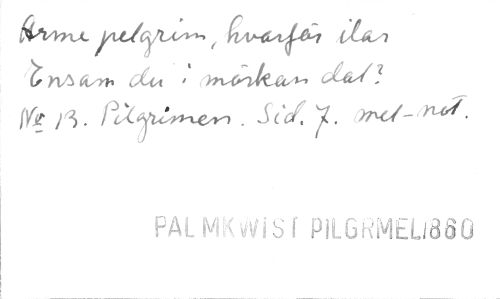 Arme pelgrim, hvarför ilar
Ensam du i mörkan dal?
No 13. Pilgrimen. Sid. 7. mel-not.
PALMKWIST PILGRMEL1860